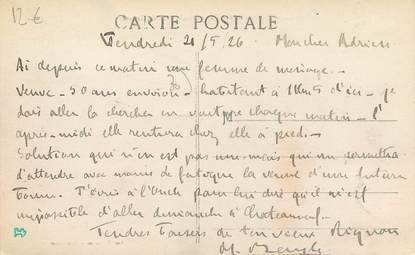 12€
CARTE POSTALE
Vendredi 21/5/26 Mon cher Adrien
Ai depuis ce matin une femme de ménage.
Veuve - 50 ans environ - habitant à 1km5 d'ici - je
dois aller la chercher en voiture chaque matin - l'
après-midi elle rentrera chez elle à pied -
Solution qui n'en est pas une mais qui me permettra
d'attendre avec moins de fatigue la venue d'une future
bonne. J'écris à l'Oncle pour lui dire qu'il m'est
impossible d'aller dimanche à Chateauneuf.
Tendres baisers de ton vieux